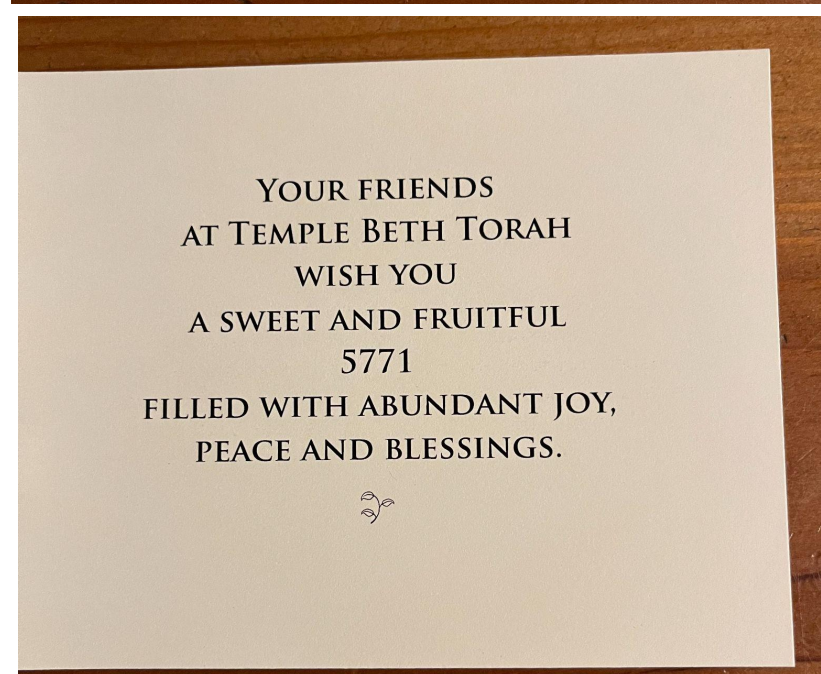 Your friends
at Temple Beth Torah
wish you
a sweet and fruitful
5771
filled with abundant joy,
peace and blessings.